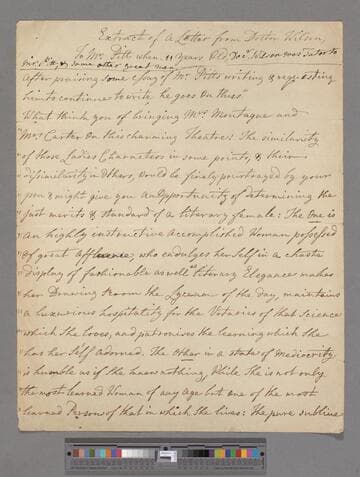 Extract of a Letter from Doctor Wilson,
To Mr. Pitt when 11 Years Old, Docr. Wilson was Tutor to
Mr. Pitt, & some other great men
After praising some Essay of Mr. Pitts writing & requesting
him to continue to write he goes on thus"
What think you of bringing Mrs. Montague and
"Mrs. Carter on this charming Theatre: The similarity
of those Ladies Characters in some points, & their
dissimilarity in others, would be finely pourtrayed by your
pen & might give you an opportunity of determining the
"just merits & standard of a literary female: The one is
"an highly instructive accomplished Woman possessed
"of great affluence, who indulges her self in a chaste
display of fashionable as well as literary Elegance makes
her Drawing Room the Lyceum of the day, maintains
a luxurious hospitality for the Votaries of that Science
which She loves, and patronises the learning which She
has her Self adorned. The other in a state of Mediocrity
is humble as if she knew nothing, While She is not only
the most learned Woman of any age but one of the most
learned Persons of that in which She lives: The pure sublime